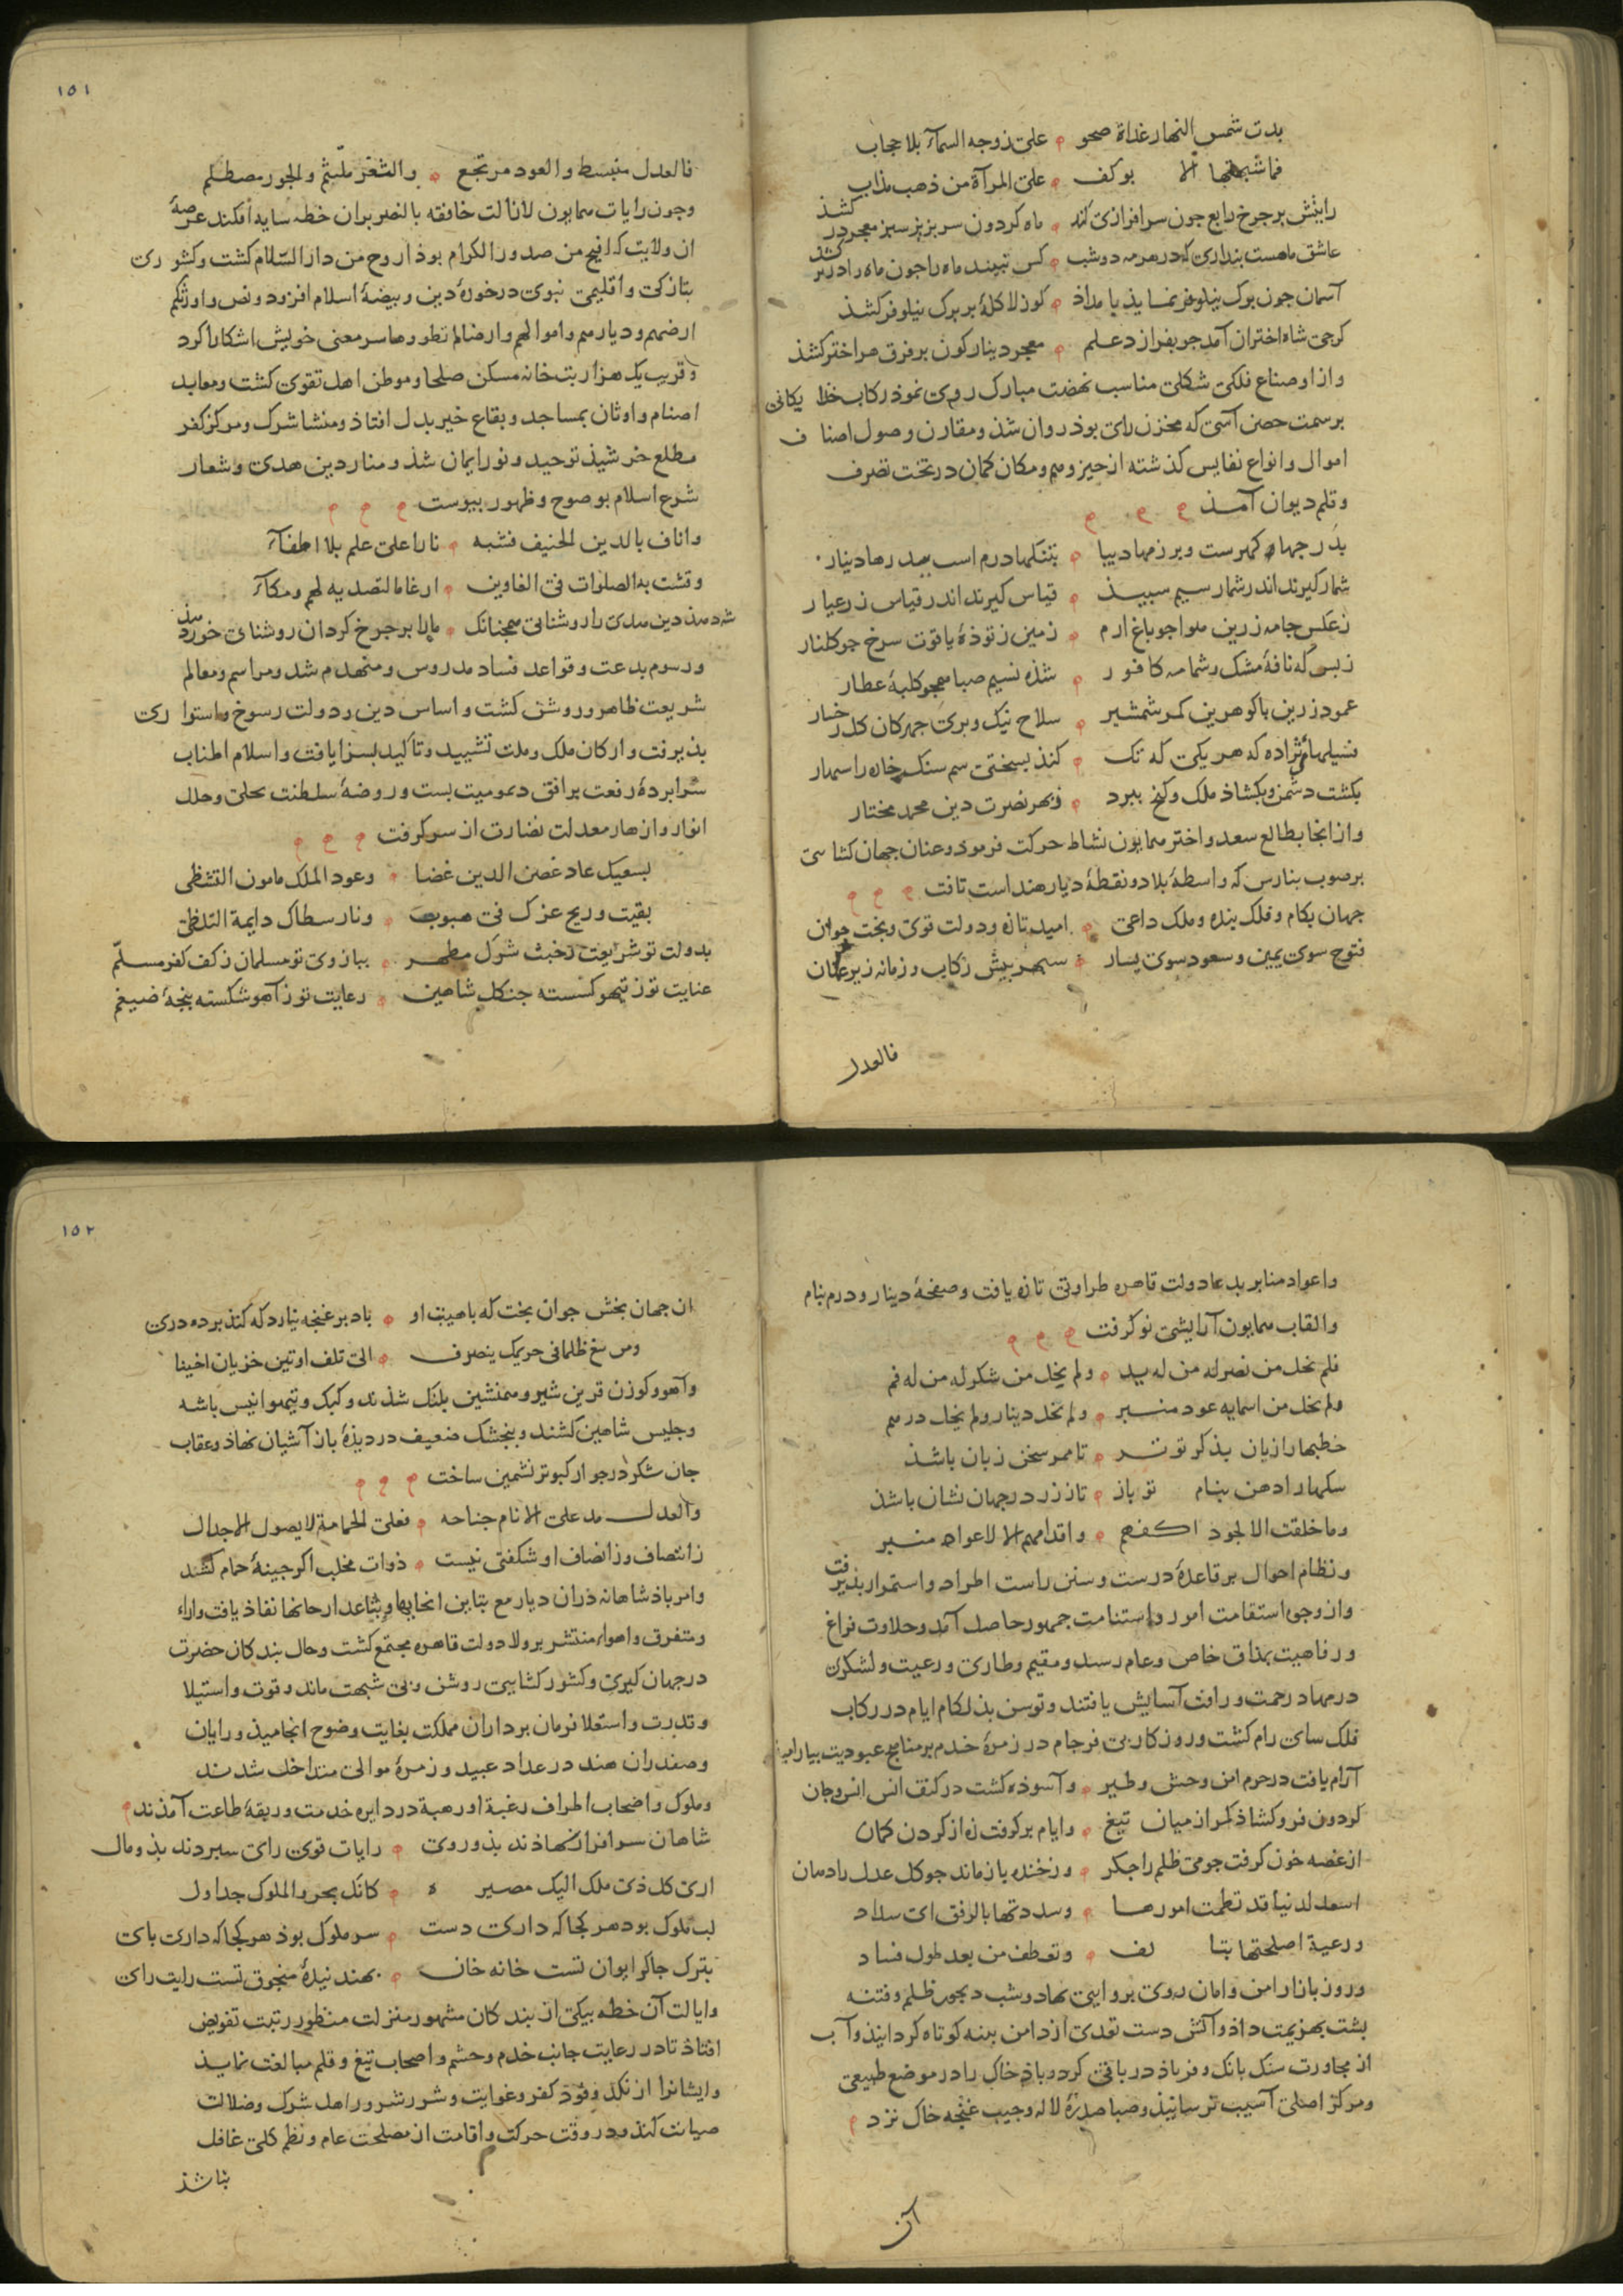 بدت شمس النهار غداة صحو ه علی زوجه السمآء بلا حجاب
فما شبهتها الا بوکف ه علی المرآة من ذهب مذاب
رایتش بر چرخ رابع چون سرافرازی کند ه ماه کردون سر بزیر سبز معجر در کشذ
عاشق ماهست بنداری که در هر مه دو شب ه کس نبیند ماه را جون ماه را در بر کشذ
آسمان جون برک نیلوفر نماید بامداذ ه کوز لاکلۀ بر برک نیلوفر کشذ
کرجی شاه اختران آمد جو بفرازد علم ه معجر دینار کون بر فرق هر اختر کشذ
و از اوضاع فلکی شکلی مناسب نهضت مبارک روی نموذ رکاب خدا یکانی
بر سمت حصن آسی که مخزن رای بوذ روان شذ و مقارن وصول اصناف
اموال و انواع نفایس کذشته از حیز وهم و مکان کمان در تحت تصرف
و قلم دیوان آمذ
بدر جها و کمرست و بر زمها دیبا ه بتنکها درم است ببدرها دینار
شمار کیرند اندر شمار سیم سبیذ ه قیاس کیرند اندر قیاس زر عیار
ز عکس جامه زرین هوا جو باغ ارم ه زمین ز توذۀ یاقوت سرخ جو کلنار
ز بس که نافۀ مشک و شمامه کافور ه شذه نسیم صبا همجو کلبۀ عطار
عمود زرین با کوهرین کمر شمشیر ه سلاح نیک و بری جهرکان کل رخسار
بیلهای نژاده که هر یکی که تک ه کند بسختی سم سنک خاره را سمار
بکشت دشمن و بکشاذ ملک و کنج ببرد ه ز بهر نصرت دین محمد مختار
و از انجا بطالع سعد و اختر همایون نشاط حرکت فرموذ و عنان جهان کشاسی
بر صوب بنارس که واسطۀ بلاد و نقطۀ دیار هند است تافت
جهان بکام و فلک بنده و ملک داعی ه امید تازه و دولت قوی و بخت جوان
فتوح سوی یمین و سعود سوی یسار ه سپهر بیش رکاب و زمانه زیر عنان
فالعدل
۱۵۱
فالعدل منبسط والعود مرتجع ه والثغر ملتئم والجور مصطلم
و جون رایات همایون لازالت خافقه بالنصر بران خطه سایه افکند عرصۀ
ان ولایت که افیح من صدور الکرام بوذ اروح من دار السلام کشت و کشوری
بتازکی و اقلیمی نبوی در حوزۀ دین و بیضۀ اسلام افزود و نص و اورثکم
ارضهم و دیارهم و اموالهم و ارضا لم تطؤوها سر معنی خویش اشکارا کرد
و قریب یک هزار بت خانه مسکن صلحا و موطن اهل تقوی کشت و معابد
اصنام و اوثان بمساجد و بقاع خیر بدل افتاذ و منشا شرک و مرکز کفر
مطلع خرشیذ توحید و نور ایمان شذ و منار دین هدی و شعار
شرع اسلام بوضوح و ظهور بیوست
واناف بالدین الحنیف فشبه ه نارا علی علم بلا اطفآء
وقئت به الصلوات فی الغاوین ه ارغاما لتصدیه لهم ومکآء
شد مذ دین هدی را روشنایی همجنانک ه ماه را بر جرخ کردان روشنای خور دهذ
و رسوم بدعت و قواعد فساد مدروس و منهدم شد و مراسم و معالم
شریعت ظاهر و روشن کشت و اساس دین و دولت رسوخ و استواری
بذیرفت و ارکان ملک و ملت تشیید و تاکید بسزا یافت و اسلام اطناب
سرابردۀ رفعت بر افق دیمومیت بست و روضۀ سلطنت بحلی و حلل
انوار و ازهار معدلت نضارت از سر کرفت
بسعیک عاد غصن الدین غضا ه وعود الملک مامون التشظی
بقیت وریح عزک فی هبوب ه ونار سطاک دایمة التلظی
بدولت تو شریعت ز خبث شرک مطهر ه ببازوی تو مسلمان ز کف کفر مسلم
عنایت تو ز تیهو کسسته جنکل شاهین ه رعایت تو ز آهو شکسته بنجۀ ضیغم
و اعواد منابر بدعا دولت قاهره طراوتی تازه یافت و صفحۀ دینار و درم بنام
و القاب همایون آرایشی نو کرفت
فلم یخل من نصر له من له ید ه ولم یخل من شکر له من له فم
ولم یخل من اسمایه عود منبر ه ولم یخل دینار ولم یخل درهم
خطبها را زبان بذکر تو تر ه تا ممر سخن زبان باشذ
سکها را دهن بنام تو باز ه تا ز زر در جهان نشان باشذ
وما خلقت الا لجود اکفهم ه واقدامهم الا لاعواد منبر
و نظام احوال بر قاعدۀ درست و سنن راست اطراد و استمرار بذیرفت
و از وجوه استقامت امور و استنامت جمهور حاصل آمد و حلاوت فراغ
و رفاهیت بمذاق خاص و عام رسید و مقیم و طاری و رعیت و لشکری
در مهاد رحمت و رافت آسایش یافتند و توسن بذ لکام ایام در رکاب
فلک سای رام کشت و روزکار بی فرجام در زمرۀ خدم بر مناهج عبودیت بیارامید
آرام یافت در حرم امن وحش و طیر ه و آسوذه کشت در کنف انس انس و جان
کردون فرو کشاذ کمر از میان تیغ ه و ایام بر کرفت زه از کردن کمان
از غصه خون کرفت جو می ظلم را جکر ه وز خنده باز ماند جو کل عدل را دهان
اسعد لدنیا قد نظمت امورها ه وسددتها بالرفق ای سداد
ورعیة اصلحتها بتالف ه وتعطف من بعد طول فساد
و روز بازار امن و امان روی بروایی نهاد و شب دیجور ظلم و فتنه
بشت بهزیمت داذ و آتش دست تعدی از دامن بنبه کوتاه کردانیذ و آب
از مجاورت سنک بانک و فریاذ در باقی کرد و باذ خاک را در موضع طبیعی
و مرکز اصلی آسیب نرسانیذ و صبا صدرۀ لاله و جیب غنجه خاک نزد
آن
۱۵۲
ان جهان بخش جوان بخت که با هیبت او ه باد بر غنجه نیارد که کند برده دری
ه الی تلف او تین خزیان اخیبا
و آهو و کوزن قرین شیر و همنشین بلنک شذند و کبک و تیهو انیس باشه
و جلیس شاهین کشتند و بنجشک ضعیف در دیذۀ باز آشیان نهاذ و عقاب
جان شکر در جوار کبوتر نشمین ساخت
والعدل مد علی الانام جناحه ه فعلی الحمامة لا یصول الاجدل
ز انتصاف وز انصاف او شکفتی نیست ه ذوات مخلب اکر جینۀ حمام کشند
و امر باذشاهانه در ان دیار مع تباین انحایها و تباعد ارجائها نفاذ یافت و اراء
متفرق و اهواء منتشر بر ولا دولت قاهره مجتمع کشت و حال بندکان حضرت
در جهان کیری و کشور کشایی روشن و بی شبهت ماند و قوت و استیلا
و قدرت و استعلا فرمان برداران مملکت بغایت وضوح انجامیذ و رایان
و صفدران هند در عداد عبید و زمرۀ موالی متداخل شدند
و ملوک و اصحاب اطراف رغبة او رهبة در دایره خدمت و ربقۀ طاعت آمذند
شاهان سرافراز نهاذند بذو روی ه رایات قوی رای سبردند بذو مال
اری کل ذی ملک الیک مصیره ه کانک بحر والملوک جداول
لب ملوک بود هر کجا که داری دست ه سر ملوک بوذ هر کجا که داری بای
بترک جاکر ایوان تست خانه خان ه بهند نیزۀ منجوق تست رایت رای
و ایالت آن خطه بیکی از بندکان مشهور منزلت منظور رتبت تفویض
افتاذ تا در رعایت جانب خدم و حشم و اصحاب تیغ و قلم مبالغت نمایذ
و ایشانرا از نکد وقود کفر و غوایت و شرر شرور اهل شرک و ضلالت
صیانت کند و در وقت حرکت و اقامت از مصلحت عام و نظم کلی غافل
نباشذ